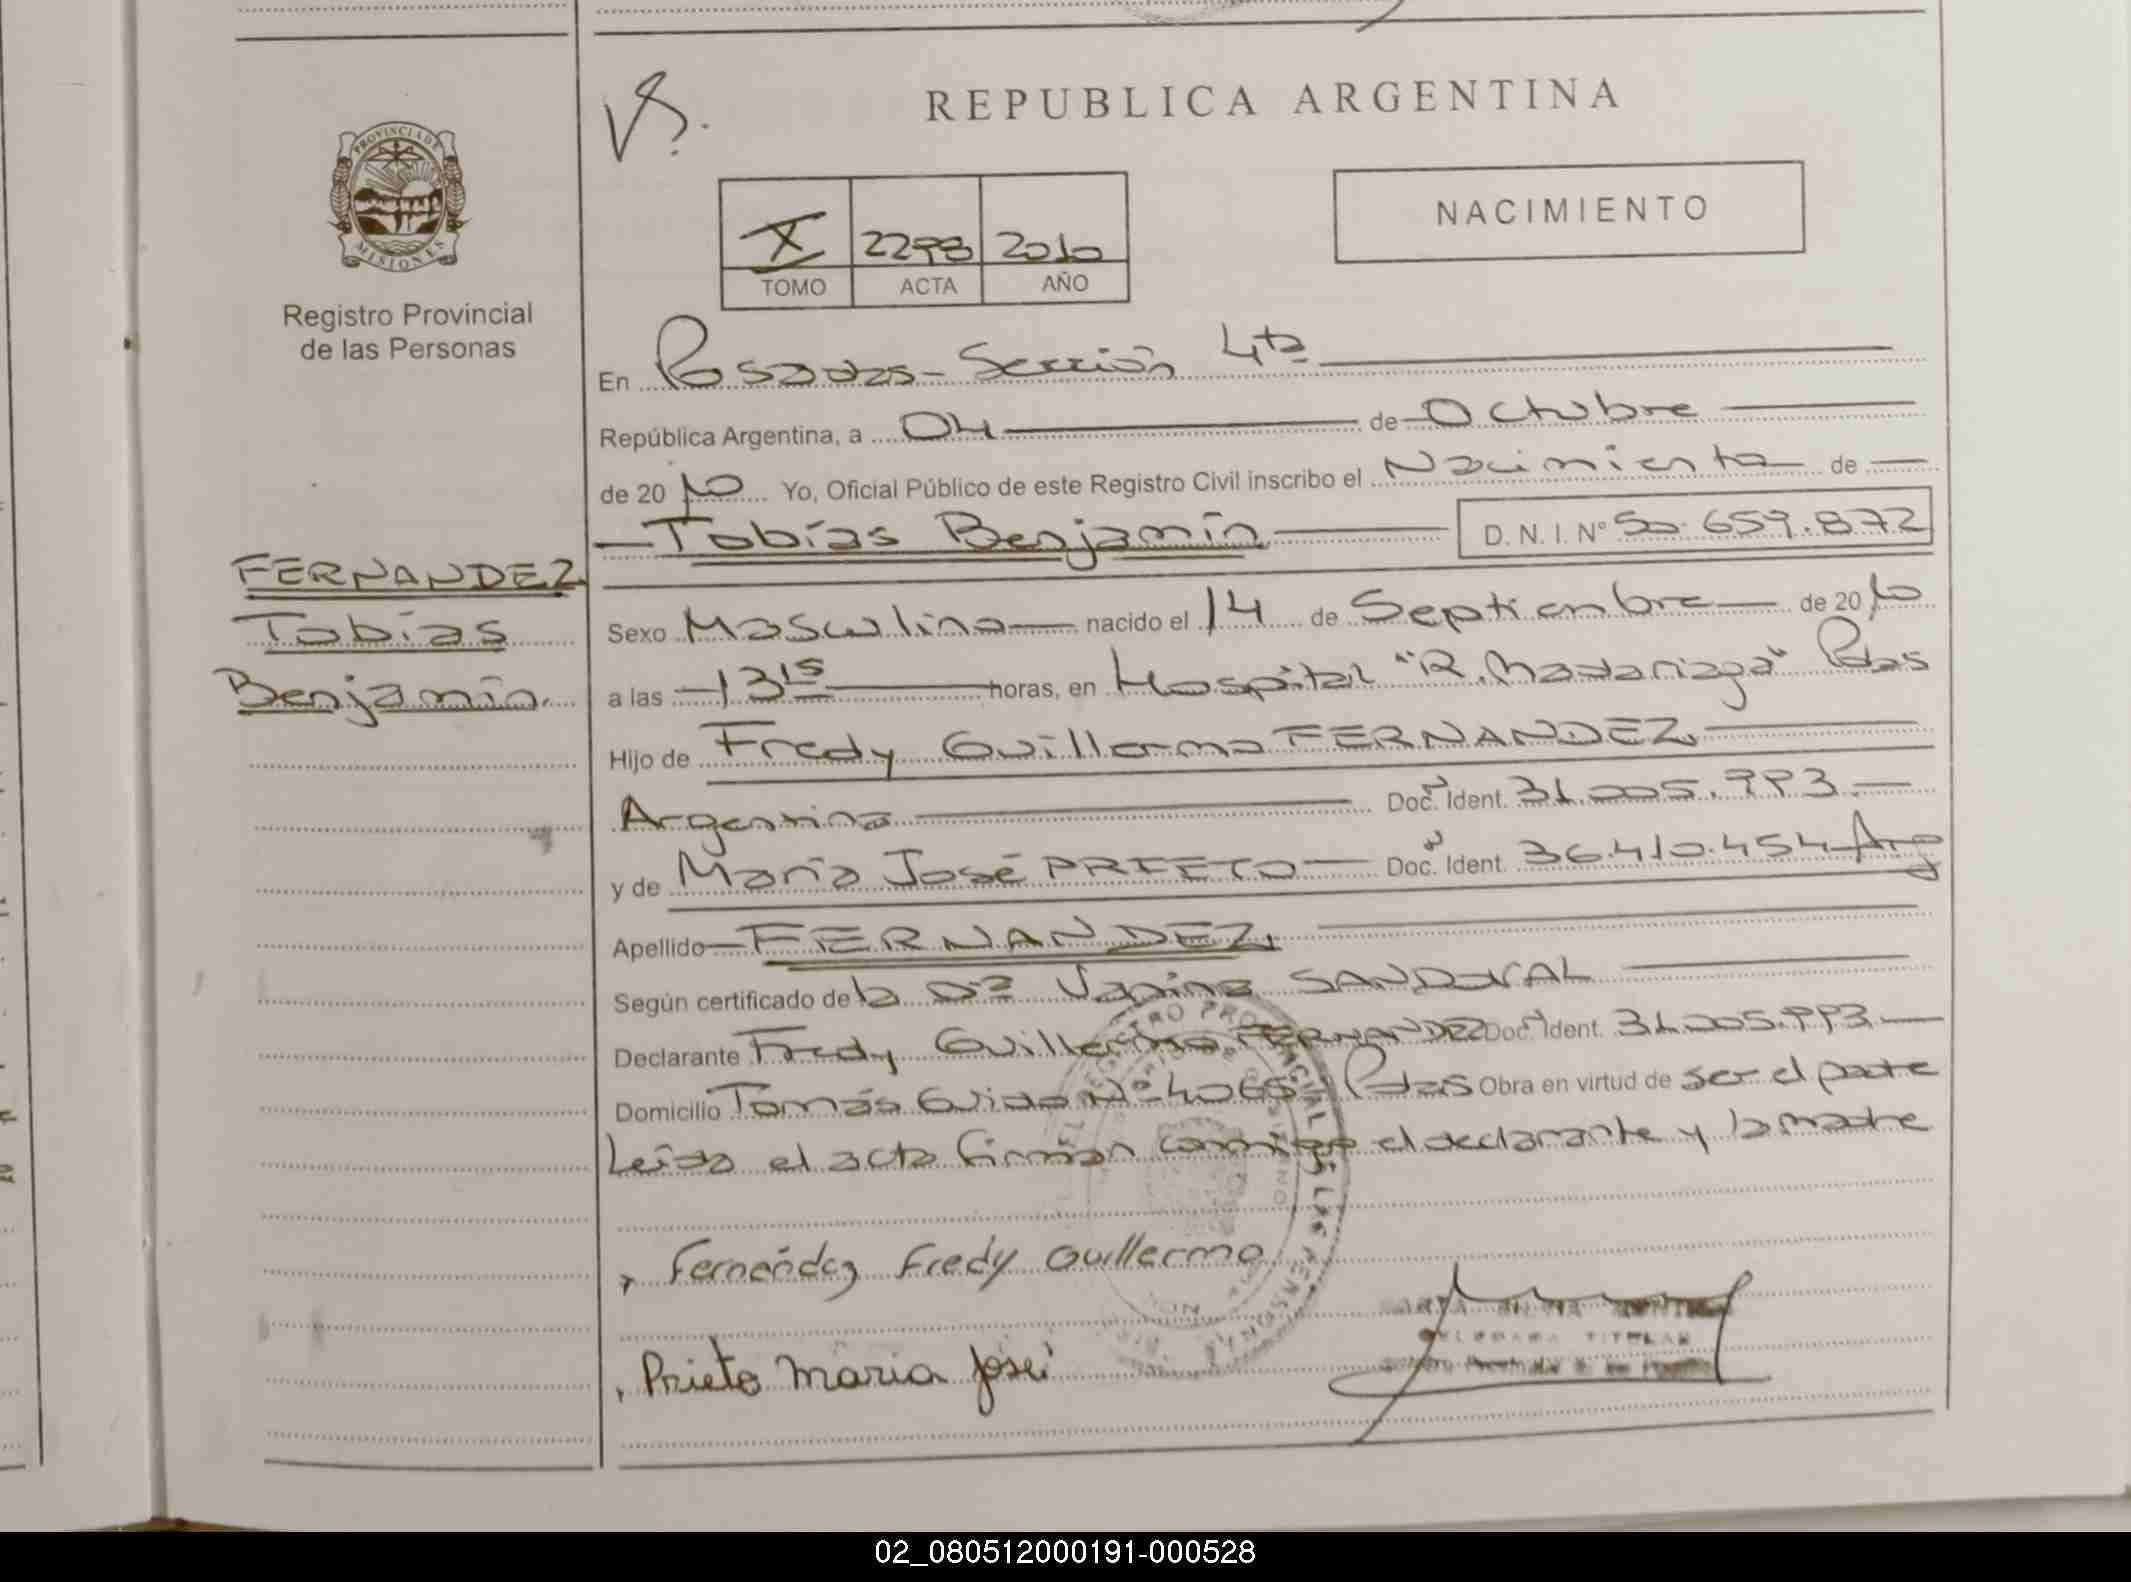 REPUBLICA ARGENTINA
NACIMIENTO
X 2298 2010
TOMO ACTA AÑO
PROVINCIA DE MISIONES
Registro Provincial
de las Personas
FERNANDEZ
Tobías
Benjamín.
En Posadas - Sección 4ta
República Argentina, a 04 de Octubre
de 2010 Yo, Oficial Público de este Registro Civil inscribo el Nacimiento de
Tobías Benjamín D. N. I. Nº 50.659.872
Sexo Masculino nacido el 14 de Septiembre de 2010
a las 13 15 horas, en Hospital "R. Madariaga" Pdas
Hijo de Fredy Guillermo FERNANDEZ
Argentino Doc. Ident. 31.005.993
y de María José PRIETO Doc. Ident. 36.410.454 Arg
Apellido FERNANDEZ
Según certificado de la Dra Vanina SANDOVAL
Declarante Fredy Guillermo FERNANDEZ Doc. Ident. 31.005.993
Domicilio Tomás Guido Nº 4065 - Pdas Obra en virtud de ser el padre
Leída el acta firman conmigo el declarante y la madre
Fernández Fredy Guillermo
Prieto María José
TITULAR
02_080512000191-000528